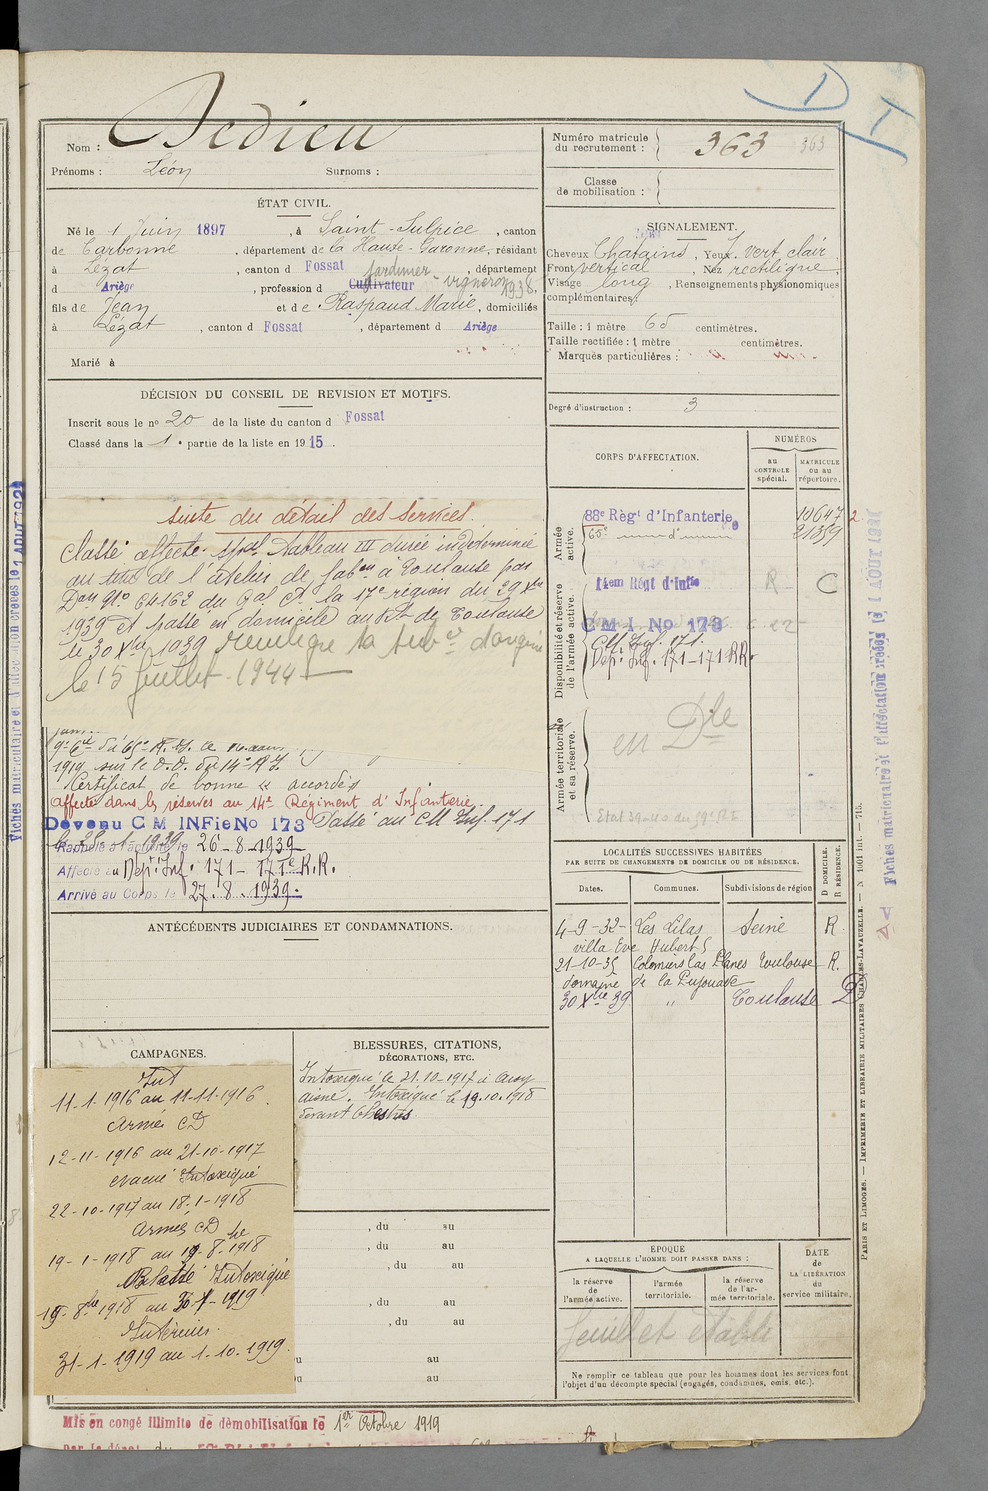 Nom : Dedieu
Prénoms : Léon Surnoms :
ÉTAT CIVIL.
Né le 1 Juin 1897, à Saint-Sulpice, canton
de Carbonne, département de la Haute-Garonne, résidant
à Lézat, canton d Fossat, département
jardinier - vigneron
d Ariège, profession d Cultivateur 1938.
fils de Jean et de Raspaud Marie, domiciliés
à Lézat, canton d Fossat, département d Ariège
Marié à
DÉCISION DU CONSEIL DE REVISION ET MOTIFS.
Inscrit sous le no 20 de la liste du canton d Fossat
Classé dans la 1e partie de la liste en 1915.
suite du détail des services.
Classé affecté spal Tableau III durée indéterminée
au titre de l'atelier de fabon à Toulouse par
Don No 64162 du Gal Ct la 17e région du 29 Xbre
1939 et passe en domicile au Rt de Toulouse
le 30 Xbre 1939
le 15 Juillet 1944
1919 sur le D.D. du 14e R.I.
Certificat de bonne accordé
Affecté dans les réserves au 14e Régiment d'Infanterie.
Devenu C M INFie No 173 Passé au CM Inf. 171
Rappelé à l'activité le 26-8-1939
Affecté au Dépt Inf. 171 - 171e R.R.
Arrivé au Corps le 27.8.1939.
ANTÉCÉDENTS JUDICIAIRES ET CONDAMNATIONS.
CAMPAGNES.
Int
11-1-1916 au 11-11-1916.
Armée CD
12-11-1916 au 21-10-1917
évacué Intoxiqué
22-10-1917 au 18-1-1918
Armée CD
19-1-1918 au 19-8bre-1918
Blessé Intoxiqué
19-8bre 1918 au 30-1-1919
Intérieur.
31-1-1919 au 1-10-1919.
BLESSURES, CITATIONS,
DÉCORATIONS, ETC.
Intoxiqué le 21.10-1917 à
Aisne. Intoxiqué le 19.10.1918
devant Chestres
, du au
, du au
, du au
, du au
, du au
au
au
Mis en congé illimité de démobilisation le 1er Octobre 1919
Numéro matricule
du recrutement : 363 363
Classe
de mobilisation :
SIGNALEMENT.
Cheveux Chatains, Yeux vert clair
Front vertical, Nez rectiligne
Visage long, Renseignements physionomiques
complémentaires :
Taille : 1 mètre 65 centimètres.
Taille rectifiée : 1 mètre centimètres.
Marques particulières :
Degré d'instruction : 3
CORPS D'AFFECTATION.
NUMÉROS
au CONTROLE spécial.
MATRICULE ou au répertoire.
Armée active.
88e Régt d'Infanterie 10647
65e d° 21359
Disponibilité et réserve de l'armée active.
14em Régt d'Infie R C
C M I No 173
CM Inf. 171
Dépt Inf. 171-171 RR.
Armée territoriale et sa réserve.
en Dle
LOCALITÉS SUCCESSIVES HABITÉES
PAR SUITE DE CHANGEMENTS DE DOMICILE OU DE RÉSIDENCE.
D DOMICILE. R RÉSIDENCE.
Dates. Communes. Subdivisions de région
4-9-32- Les Lilas Seine R
villa Eve Hubert 5
21-10-35 Colomiers las Planes Toulouse R.
domaine de la Pujouade
30 Xbre 39 " Toulouse D
ÉPOQUE
A LAQUELLE L'HOMME DOIT PASSER DANS :
DATE
de
LA LIBÉRATION
du
service militaire.
la réserve de l'armée active.
l'armée territoriale.
la réserve de l'armée territoriale.
feuillet établi
Ne remplir ce tableau que pour les hommes dont les services font
l'objet d'un décompte spécial (engagés, condamnés, omis, etc.).
PARIS ET LIMOGES. — IMPRIMERIE ET LIBRAIRIE MILITAIRES CHARLES-LAVAUZELLE. — N 1601 int. — 715.
Fiches matriculaire et d'affectation créées le 1 AOUT 192
Fiches matriculaire et d'affectation créées le 1 AOUT 1927